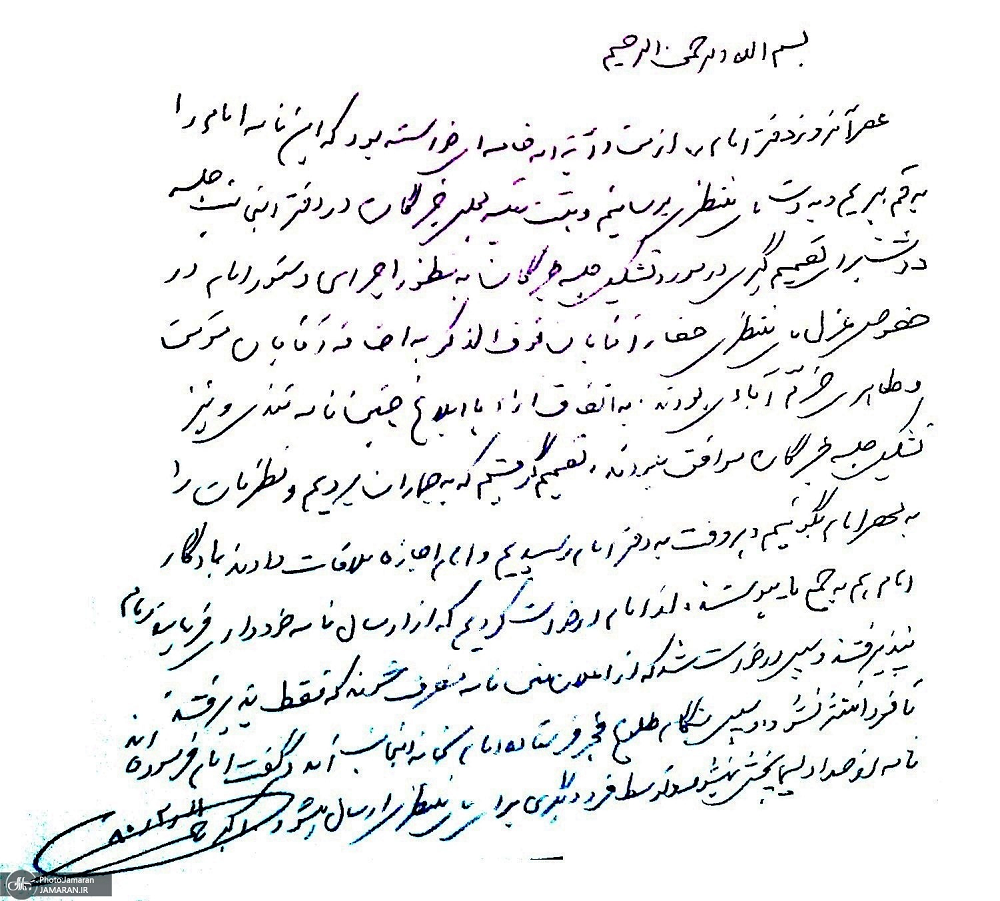 بسم الله الرحمن الرحیم
عصر آنروز دفتر امام، از من و آیة الله خامنه‌ای خواسته بود که این نامه امام را
به قم ببریم و به دست آقای منتظری برسانیم و هیئت رئیسه مجلس خبرگان در دفتر اینجانب جلسه
داشت برای تصمیم گیری در مورد تشکیل جلسه خبرگان به منظور اجرای دستور امام در
خصوص عزل آقای منتظری حضار آقایان فوق الذکر به اضافه آقایان مؤمن
و طاهری خرّم آبادی بودند. به اتفاق آراء با ابلاغ چنین نامه تندی و نیز
تشکیل جلسه خبرگان موافق نبودند، تصمیم گرفتیم که به جماران برویم و نظرمان را
به محضر امام بگوئیم دیروقت به دفتر امام رسیدیم و امام اجازه ملاقات دادند یادگار
امام هم به جمع ما پیوستند، از امام درخواست کردیم که از ارسال نامه خودداری فرمایند امام
نپذیرفتند و سپس درخواست شد که از اعلان متن نامه منصرف شوند که فقط پذیرفتند
تا فردا منتشر نشود و سپس هنگام طلوع فجر فرستاده امام به خانه اینجانب آمد و گفت امام فرموده‌اند
نامه از صدا و سیما پخش نمیشود و توسط فرد دیگری برای آقای منتظری ارسال میشود
PhotoJamaran
JAMARAN.IR